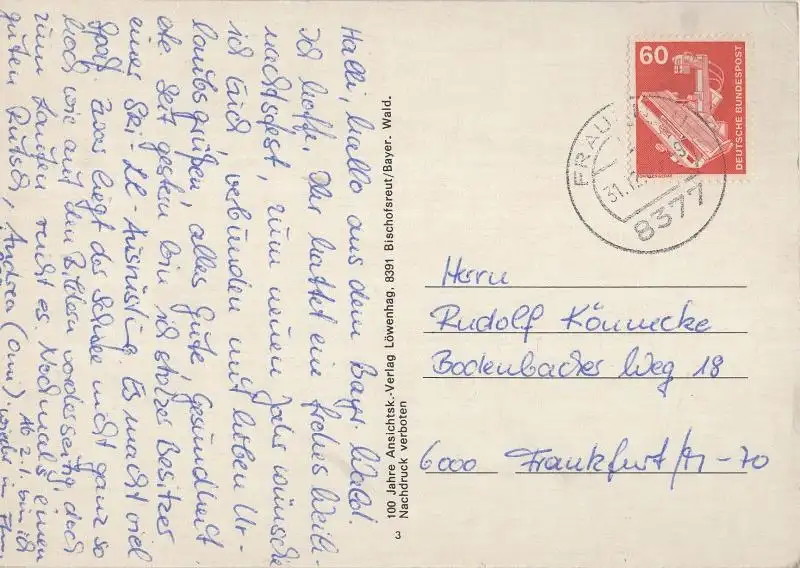 Halli, hallo aus dem Bayr. Wald!
Ich hoffe, Ihr hattet ein frohes Weih-
nachtsfest, zum neuen Jahr wünsche
ich Euch verbunden mit lieben Ur-
laubsgrüßen, alles Gute, Gesundheit
etc. Seit gestern bin ich stolzer Besitzer
einer Ski-LL-Ausrüstung. Es macht viel
Spaß. Zwar liegt der Schnee nicht ganz so
hoch wie auf den Bildern vorderseitig, doch
zum Laufen reicht es. Nochmals einen
guten Rutsch, Andrea (
Ab 2.1. bin ich
wieder in
100 Jahre Ansichtsk.-Verlag Löwenhag, 8391 Bischofsreut/Bayer. Wald.
Nachdruck verboten
3
60
DEUTSCHE BUNDESPOST
FRAU
31.12.
8377
Herrn
Rudolf Könnecke
Bodenbacher Weg 18
6000 Frankfurt/M-70